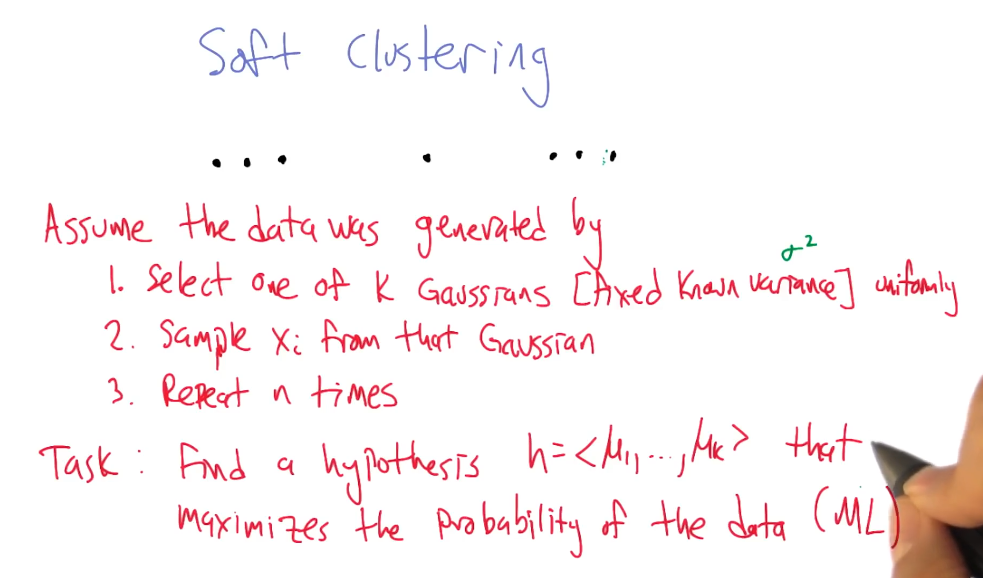 Soft Clustering
Assume the data was generated by
σ²
1. Select one of K Gaussians [Fixed Known variance] uniformly
2. Sample Xi from that Gaussian
3. Repeat n times
Task: Find a hypothesis h=<μ1,...,μK> that
maximizes the probability of the data (ML)